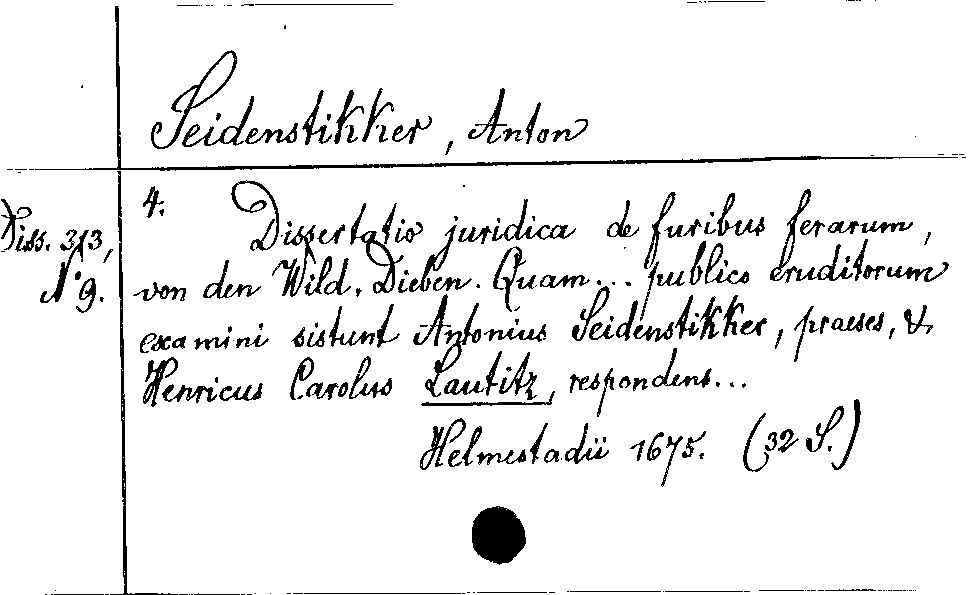 Seidenstikker, Anton
4.
Diss. 313,
N° 9.
Dissertatio juridica de furibus ferarum,
von den Wild, Dieben. Quam... publico eruditorum
examini sistunt Antonius Seidenstikker, praeses, &
Henricus Carolus Lautitz, respondens...
Helmestadii 1675. (32 S.)